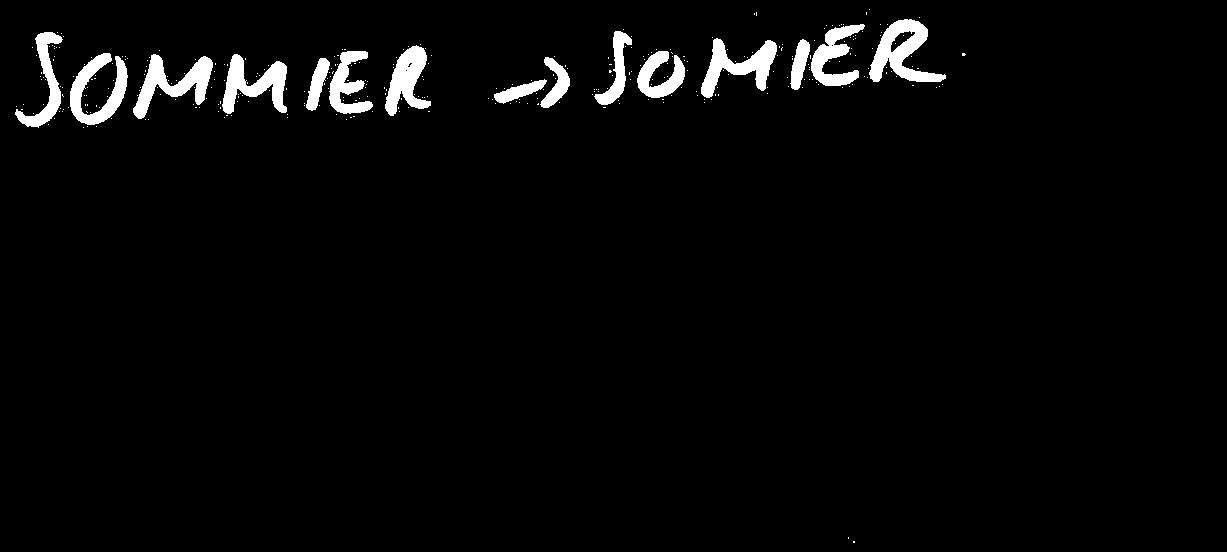 SOMMIER → SOMIER